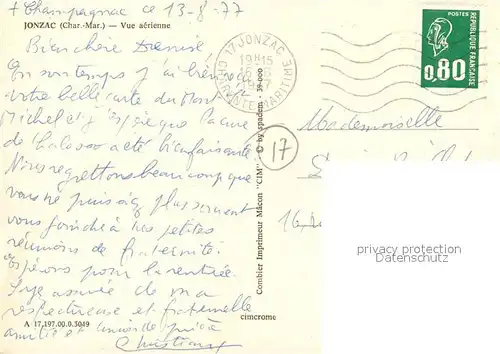 + Champagnac ce 13-8-77
JONZAC (Char.-Mar.) — Vue aérienne
Bien chère Denise
En son temps j'ai bien reçu
votre belle carte du Mont
Michel et j'espère que la cure
de a été bienfaisante
Nous regrettons beaucoup que
vous ne puissiez plus souvent
vous joindre à nos petites
réunions de fraternité.
Espérons pour la rentrée.
Soyez assurée de ma
respectueuse et fraternelle
amitié et union de prière
Christiane
A 17.197.00.0.3049
cimcrome
Combier Imprimeur Mâcon "CIM" © by spadem - 39-000
17 JONZAC
19H15
1977
CHARENTE MARITIME
POSTES
REPUBLIQUE FRANÇAISE
0,80
17
Mademoiselle
16
privacy protection
AnsichtskartenCenter